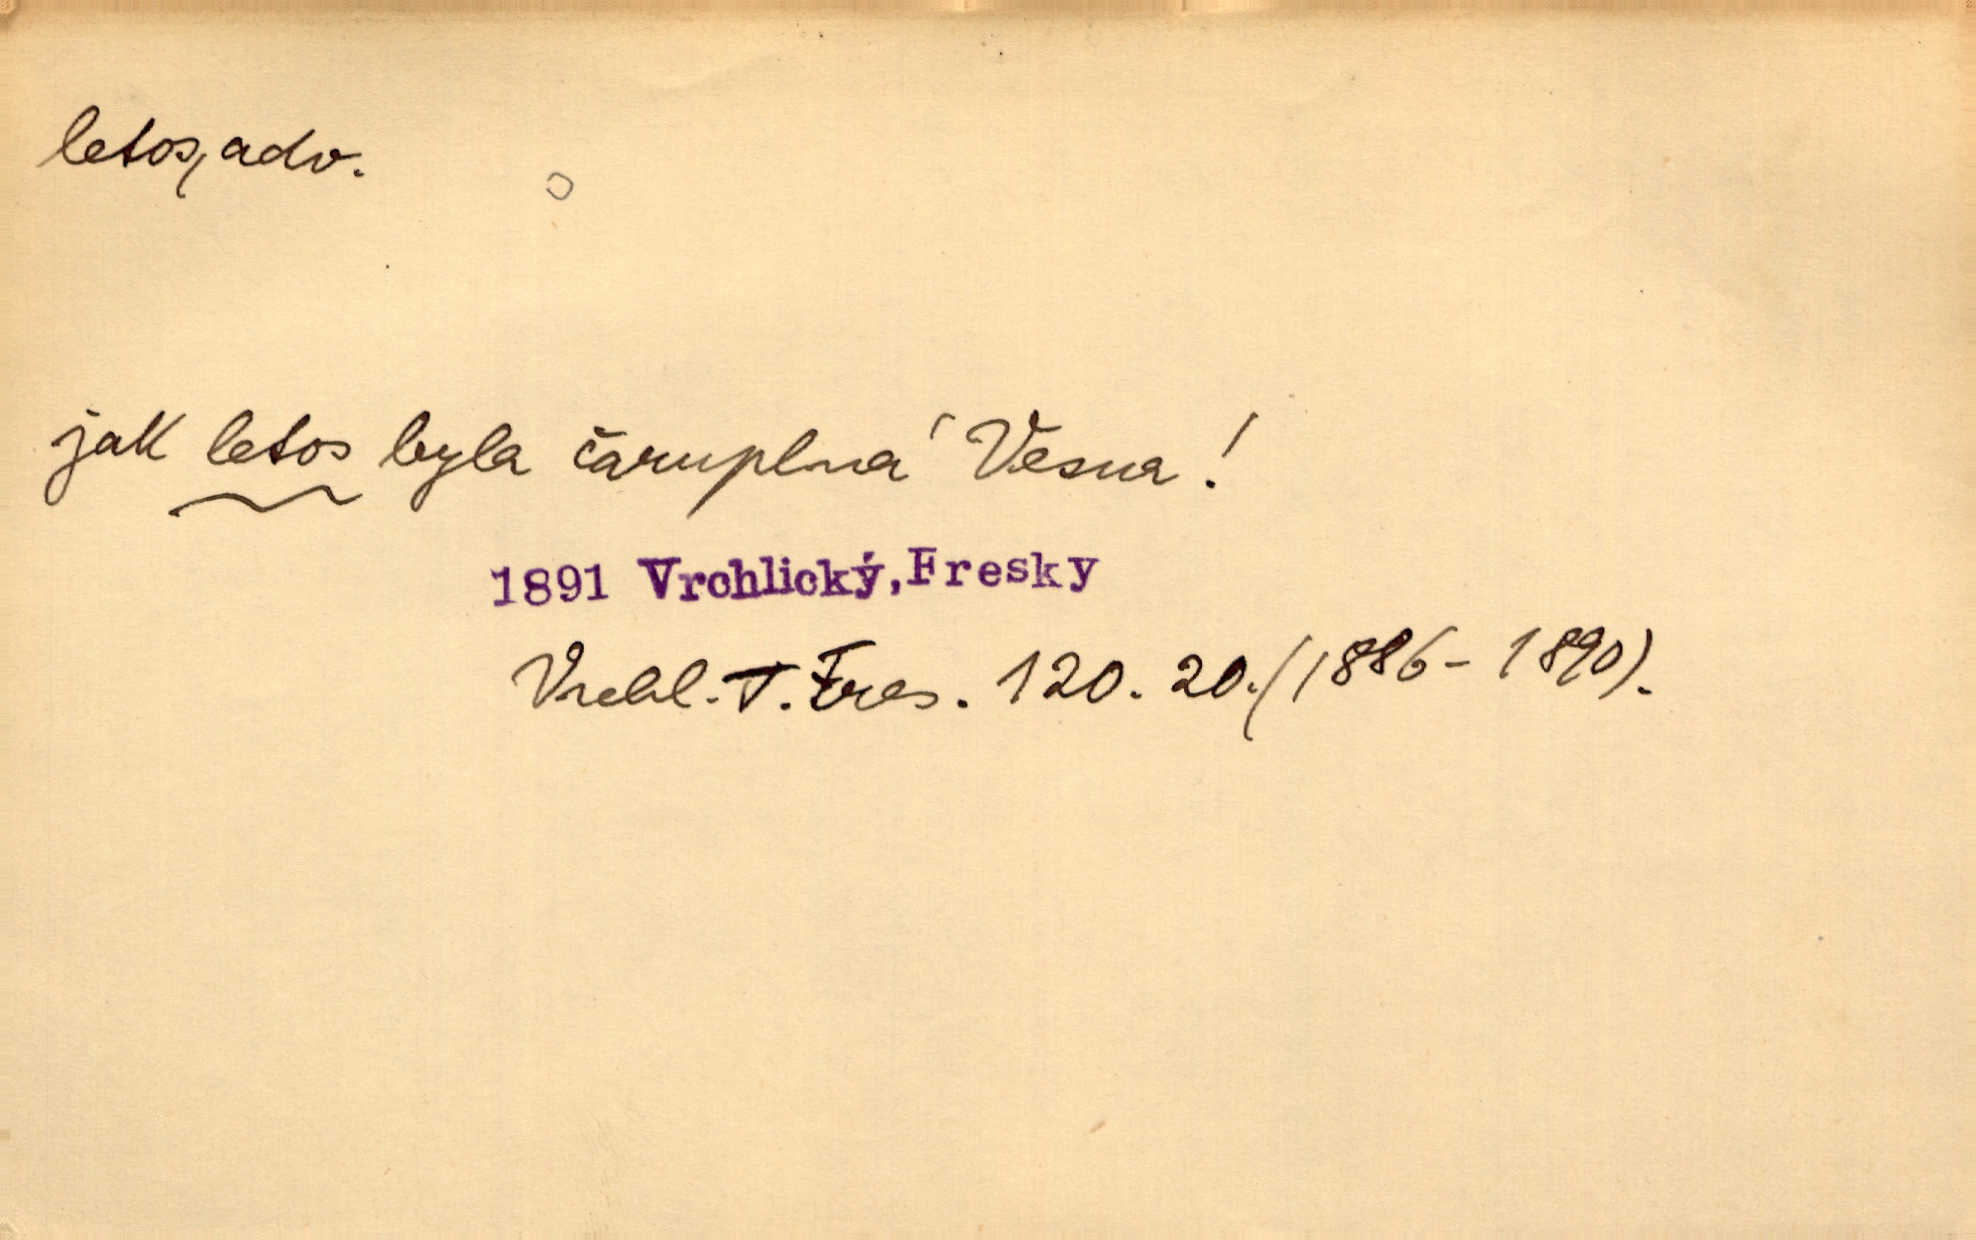 letos, adv.
jak letos byla čaruplná Vesna!
1891 Vrchlický, Fresky
Vrchl. J. Fres. 120. 20. (1886-1890).